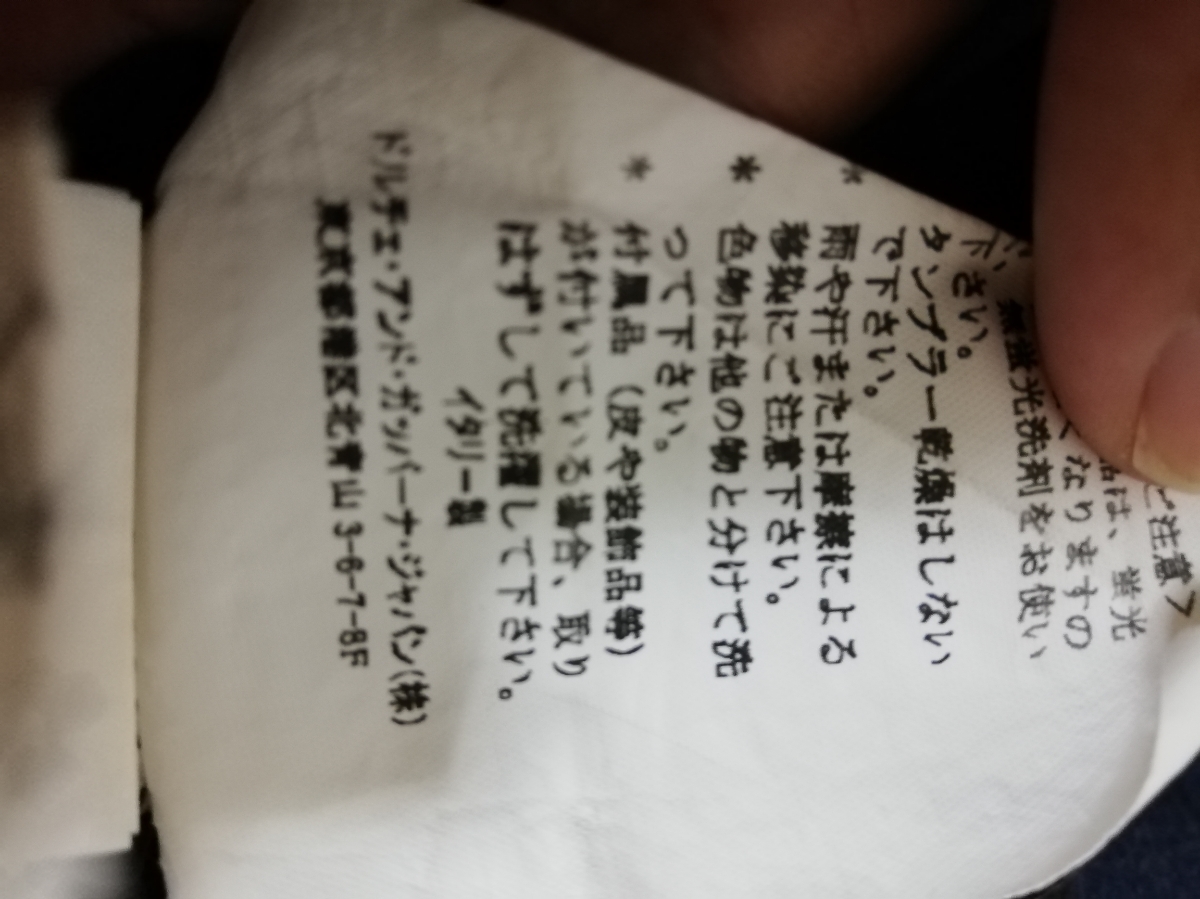 ご注意
品は、蛍光
なりますの
無蛍光洗剤をお使い
下さい。
タンブラー乾燥はしない
で下さい。
* 雨や汗または摩擦による
移染にご注意下さい。
* 色物は他の物と分けて洗
って下さい。
* 付属品（皮や装飾品等）
が付いている場合、取り
はずして洗濯して下さい。
イタリー製
ドルチェ・アンド・ガッバーナ・ジャパン(株)
東京都港区北青山3-6-7-8F